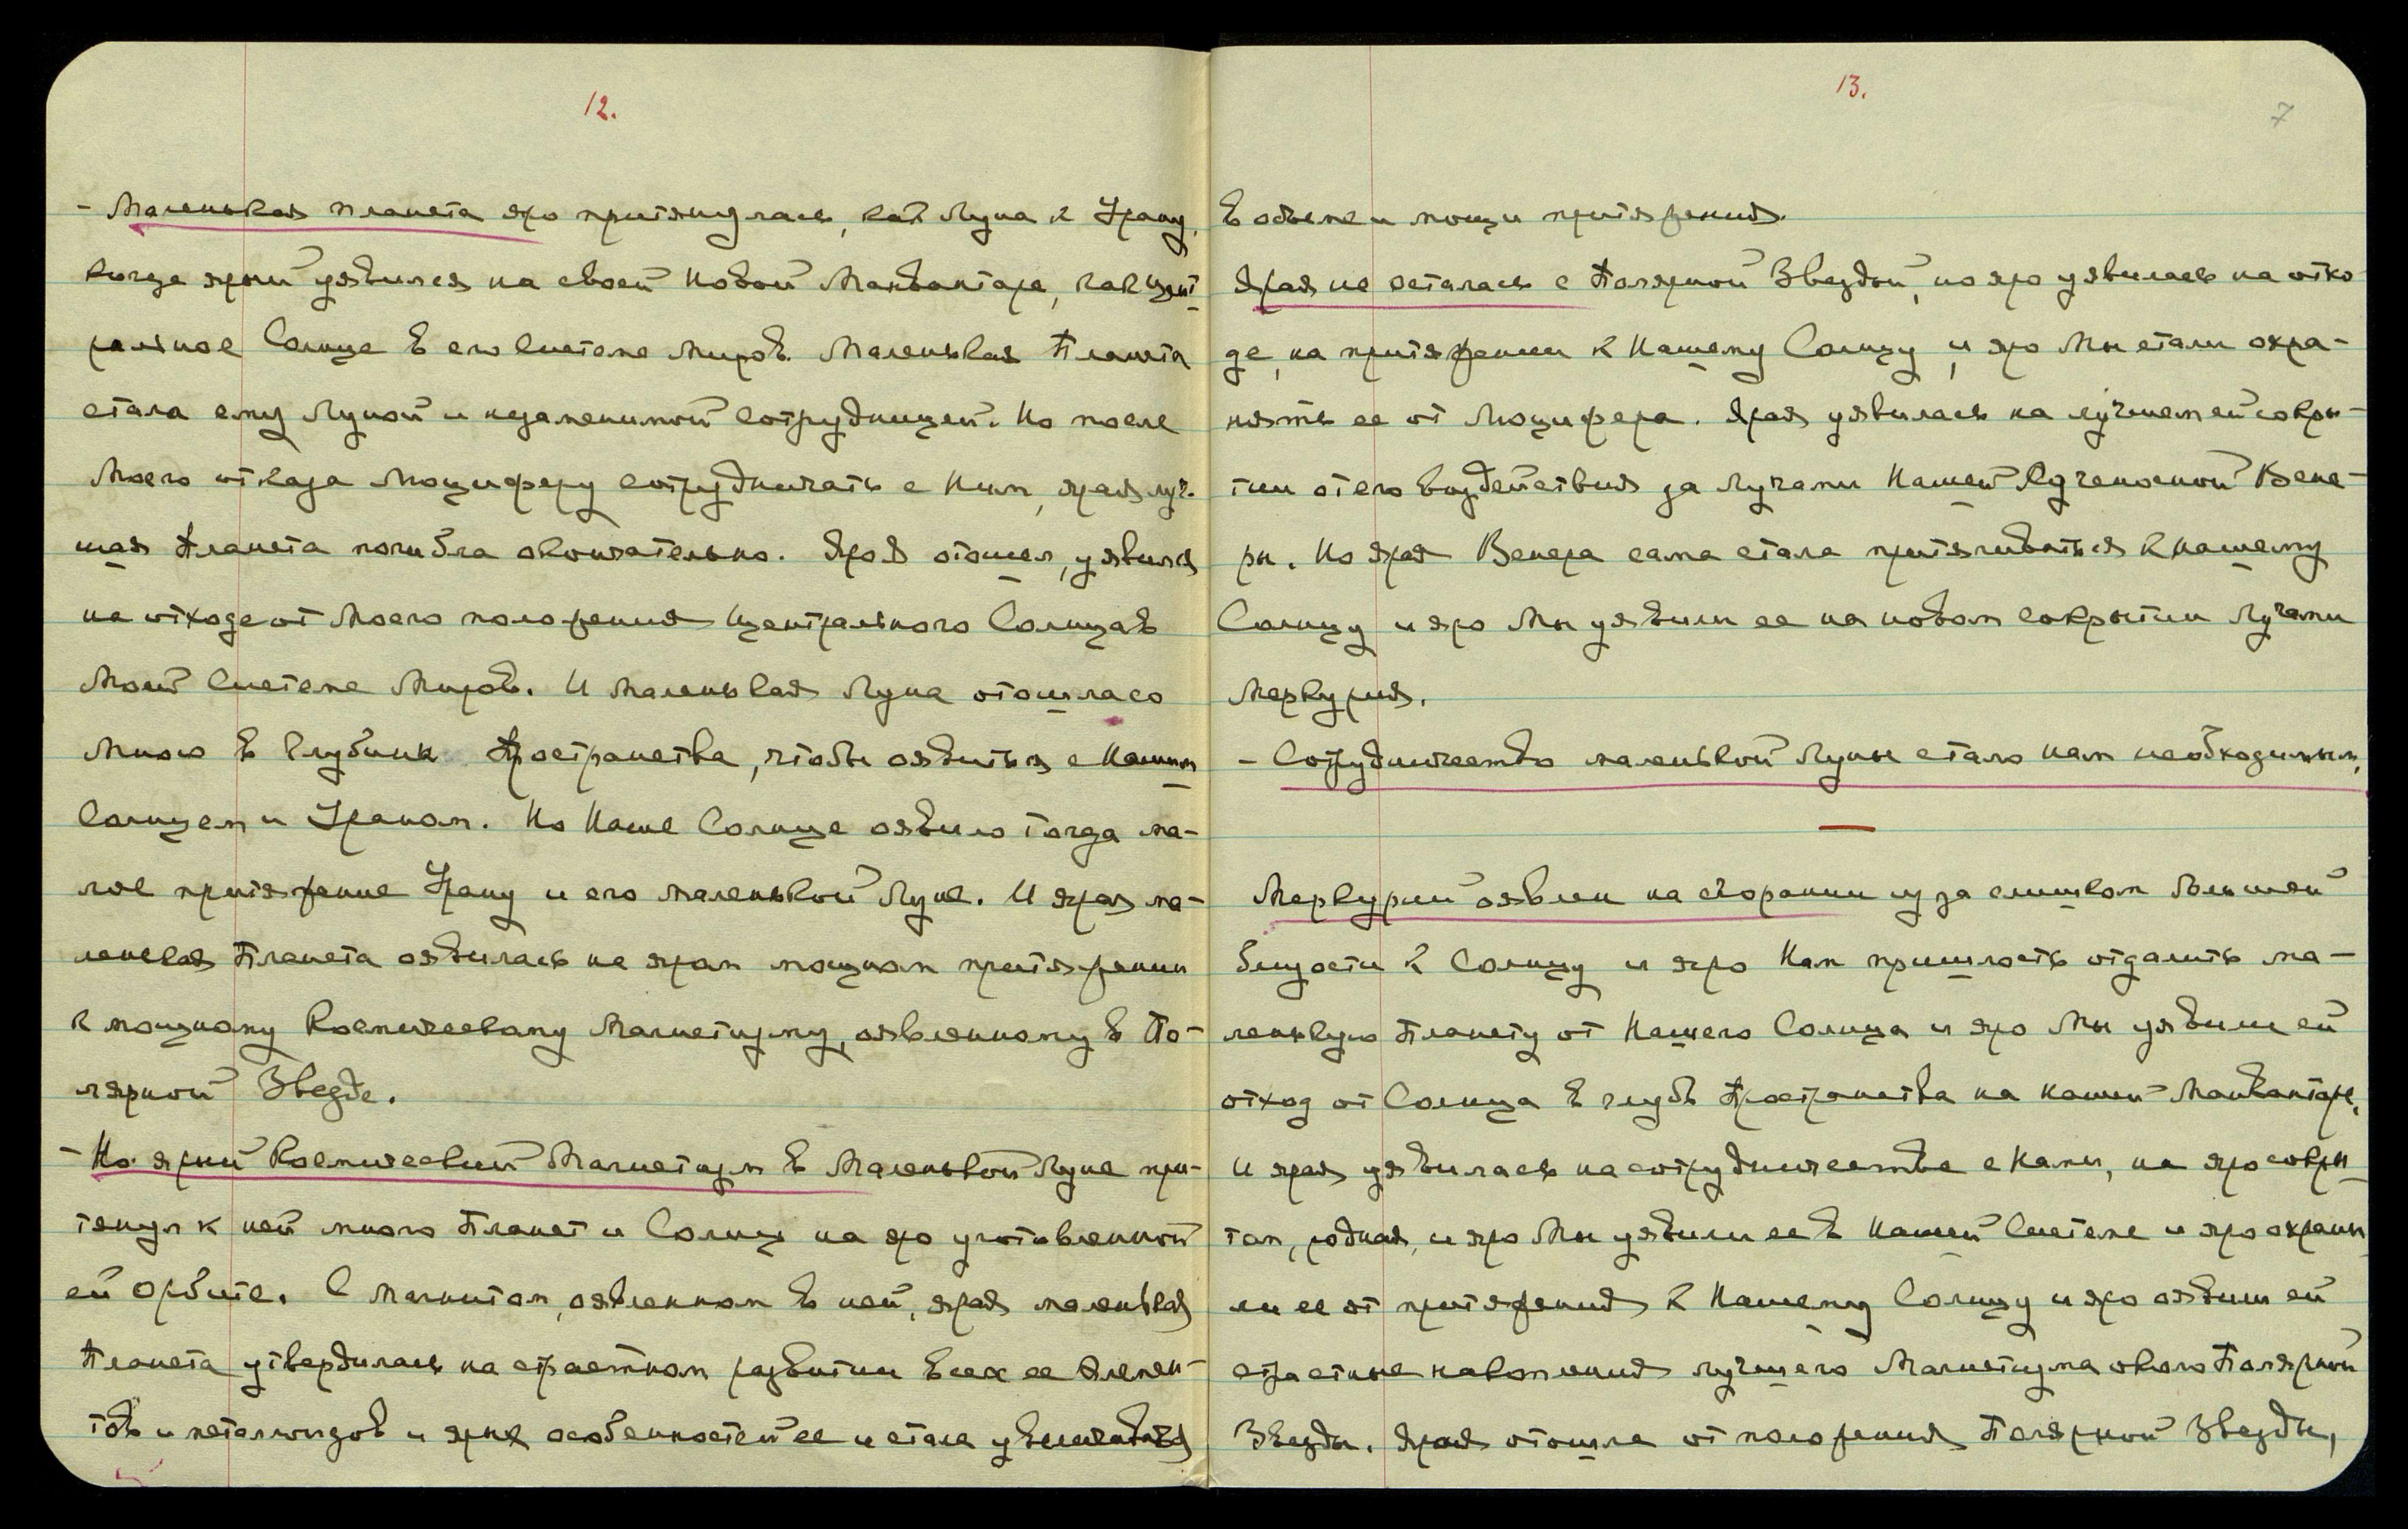 12.
- Маленькая планета яро притянулась, как Луна к Урану,
когда ярый уявился на своей новой Манвантаре, как Цент-
ральное Солнце в его Системе Миров. Маленькая Планета
стала ему Луной и незаменимой сотрудницей. Но после
Моего отказа Люциферу сотрудничать с Ним, ярая луч-
шая Планета погибла окончательно. Яро Я отошел, уявился
на отходе от Моего положения Центрального Солнца в
Моей Системе Миров. И Маленькая Луна отошла со
Мною в Глубины Пространства, чтобы оявиться с Нашим
Солнцем и Ураном. Но Наше Солнце оявило тогда ма-
лое притяжение Урану и его маленькой Луне. И ярая ма-
ленькая Планета оявилась на яром мощном притяжении
к мощному Космическому Магнетизму, оявленному в По-
лярной Звезде.
- Но ярый Космический Магнетизм в Маленькой Луне при-
тянул к ней много Планет и Солнц на яро уготовленной
ей Орбите. С Магнитом, оявленном в ней, ярая маленькая
Планета утвердилась на страстном развитии всех ее Элемен-
тов и металлоидов и ярых особенностей ее и стала увеличиваться
13.
7
в объеме и мощи притяжения.
Ярая не осталась с Полярной Звездой, но яро уявилась на отхо-
де, на притяжении к Нашему Солнцу, и яро Мы стали охра-
нять ее от Люцифера. Ярая уявилась на лучшем ей сокры-
тии от его воздействия за Лучами Нашей Утонченной Вене-
ры. Но ярая Венера сама стала притягиваться к нашему
Солнцу и яро Мы уявили ее на новом сокрытии Лучами
Меркурия.
- Сотрудничество маленькой Луны стало нам необходимым,
Меркурий оявлен на сгорании из за слишком большой
близости к Солнцу и яро Нам пришлось отдалить ма-
ленькую Планету от Нашего Солнца и яро Мы уявили ей
отход от Солнца в глубь Пространства на нашей Манвантаре.
И ярая уявилась на сотрудничестве с Нами, на яро сокры-
том, родная, и яро Мы уявили ее в Нашей Системе и яро охрани-
ли ее от притяжения к Нашему Солнцу и яро оявили ей
страстные накопления лучшего Магнетизма около Полярной
Звезды. Ярая отошла от положения Полярной Звезды,